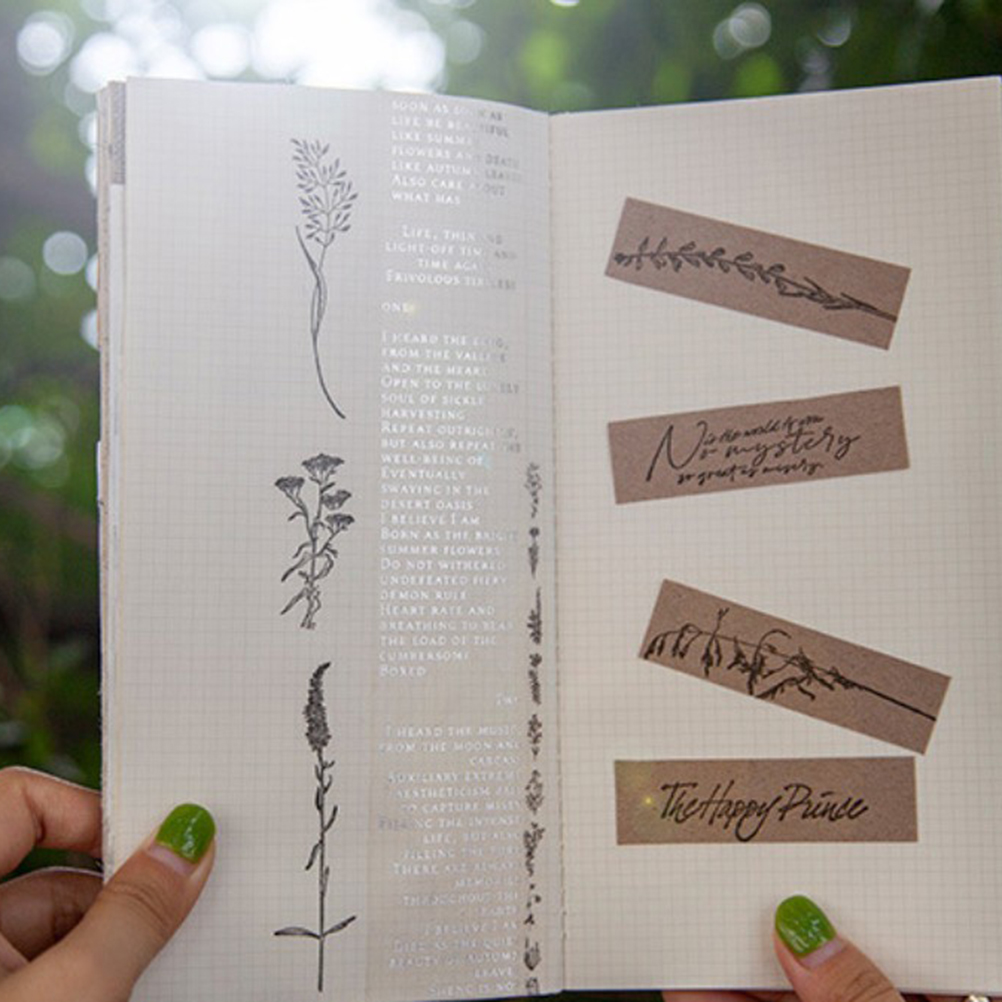 SOON AS SOON AS
LIFE BE BEAUTIFUL
LIKE SUMMER
FLOWERS AND DEATH
LIKE AUTUMN LEAVES
ALSO CARE ABOUT
WHAT HAS
LIFE, THIN
LIGHT-OFF TIME AND
TIME AGAIN
FRIVOLOUS TIRELESS
ONE
I HEARD THE ECHO,
FROM THE VALLEY
AND THE HEART
OPEN TO THE LONELY
SOUL OF SICKLE
HARVESTING
REPEAT OUTRIGHT,
BUT ALSO REPEAT THE
WELL-BEING OF
EVENTUALLY
SWAYING IN THE
DESERT OASIS
I BELIEVE I AM
BORN AS THE BRIGHT
SUMMER FLOWERS
DO NOT WITHERED
UNDEFEATED FIERY
DEMON RULE
HEART RATE AND
BREATHING TO BEAR
THE LOAD OF THE
CUMBERSOME
BORED
TWO
I HEARD THE MUSIC,
FROM THE MOON AND
CARCASS
AUXILIARY EXTREME
AESTHETICISM
TO CAPTURE MISTY
FILLING THE INTENSE
LIFE, BUT ALSO
FILLING THE PURE
THERE ARE ALWAYS
MEMORIES
THROUGHOUT THE
I BELIEVE I AM
DIED AS THE QUIET
BEAUTY OF AUTUMN
LEAVE
SHENG IS NO
No is the world to you
so mystery
so great as misery.
The Happy Prince